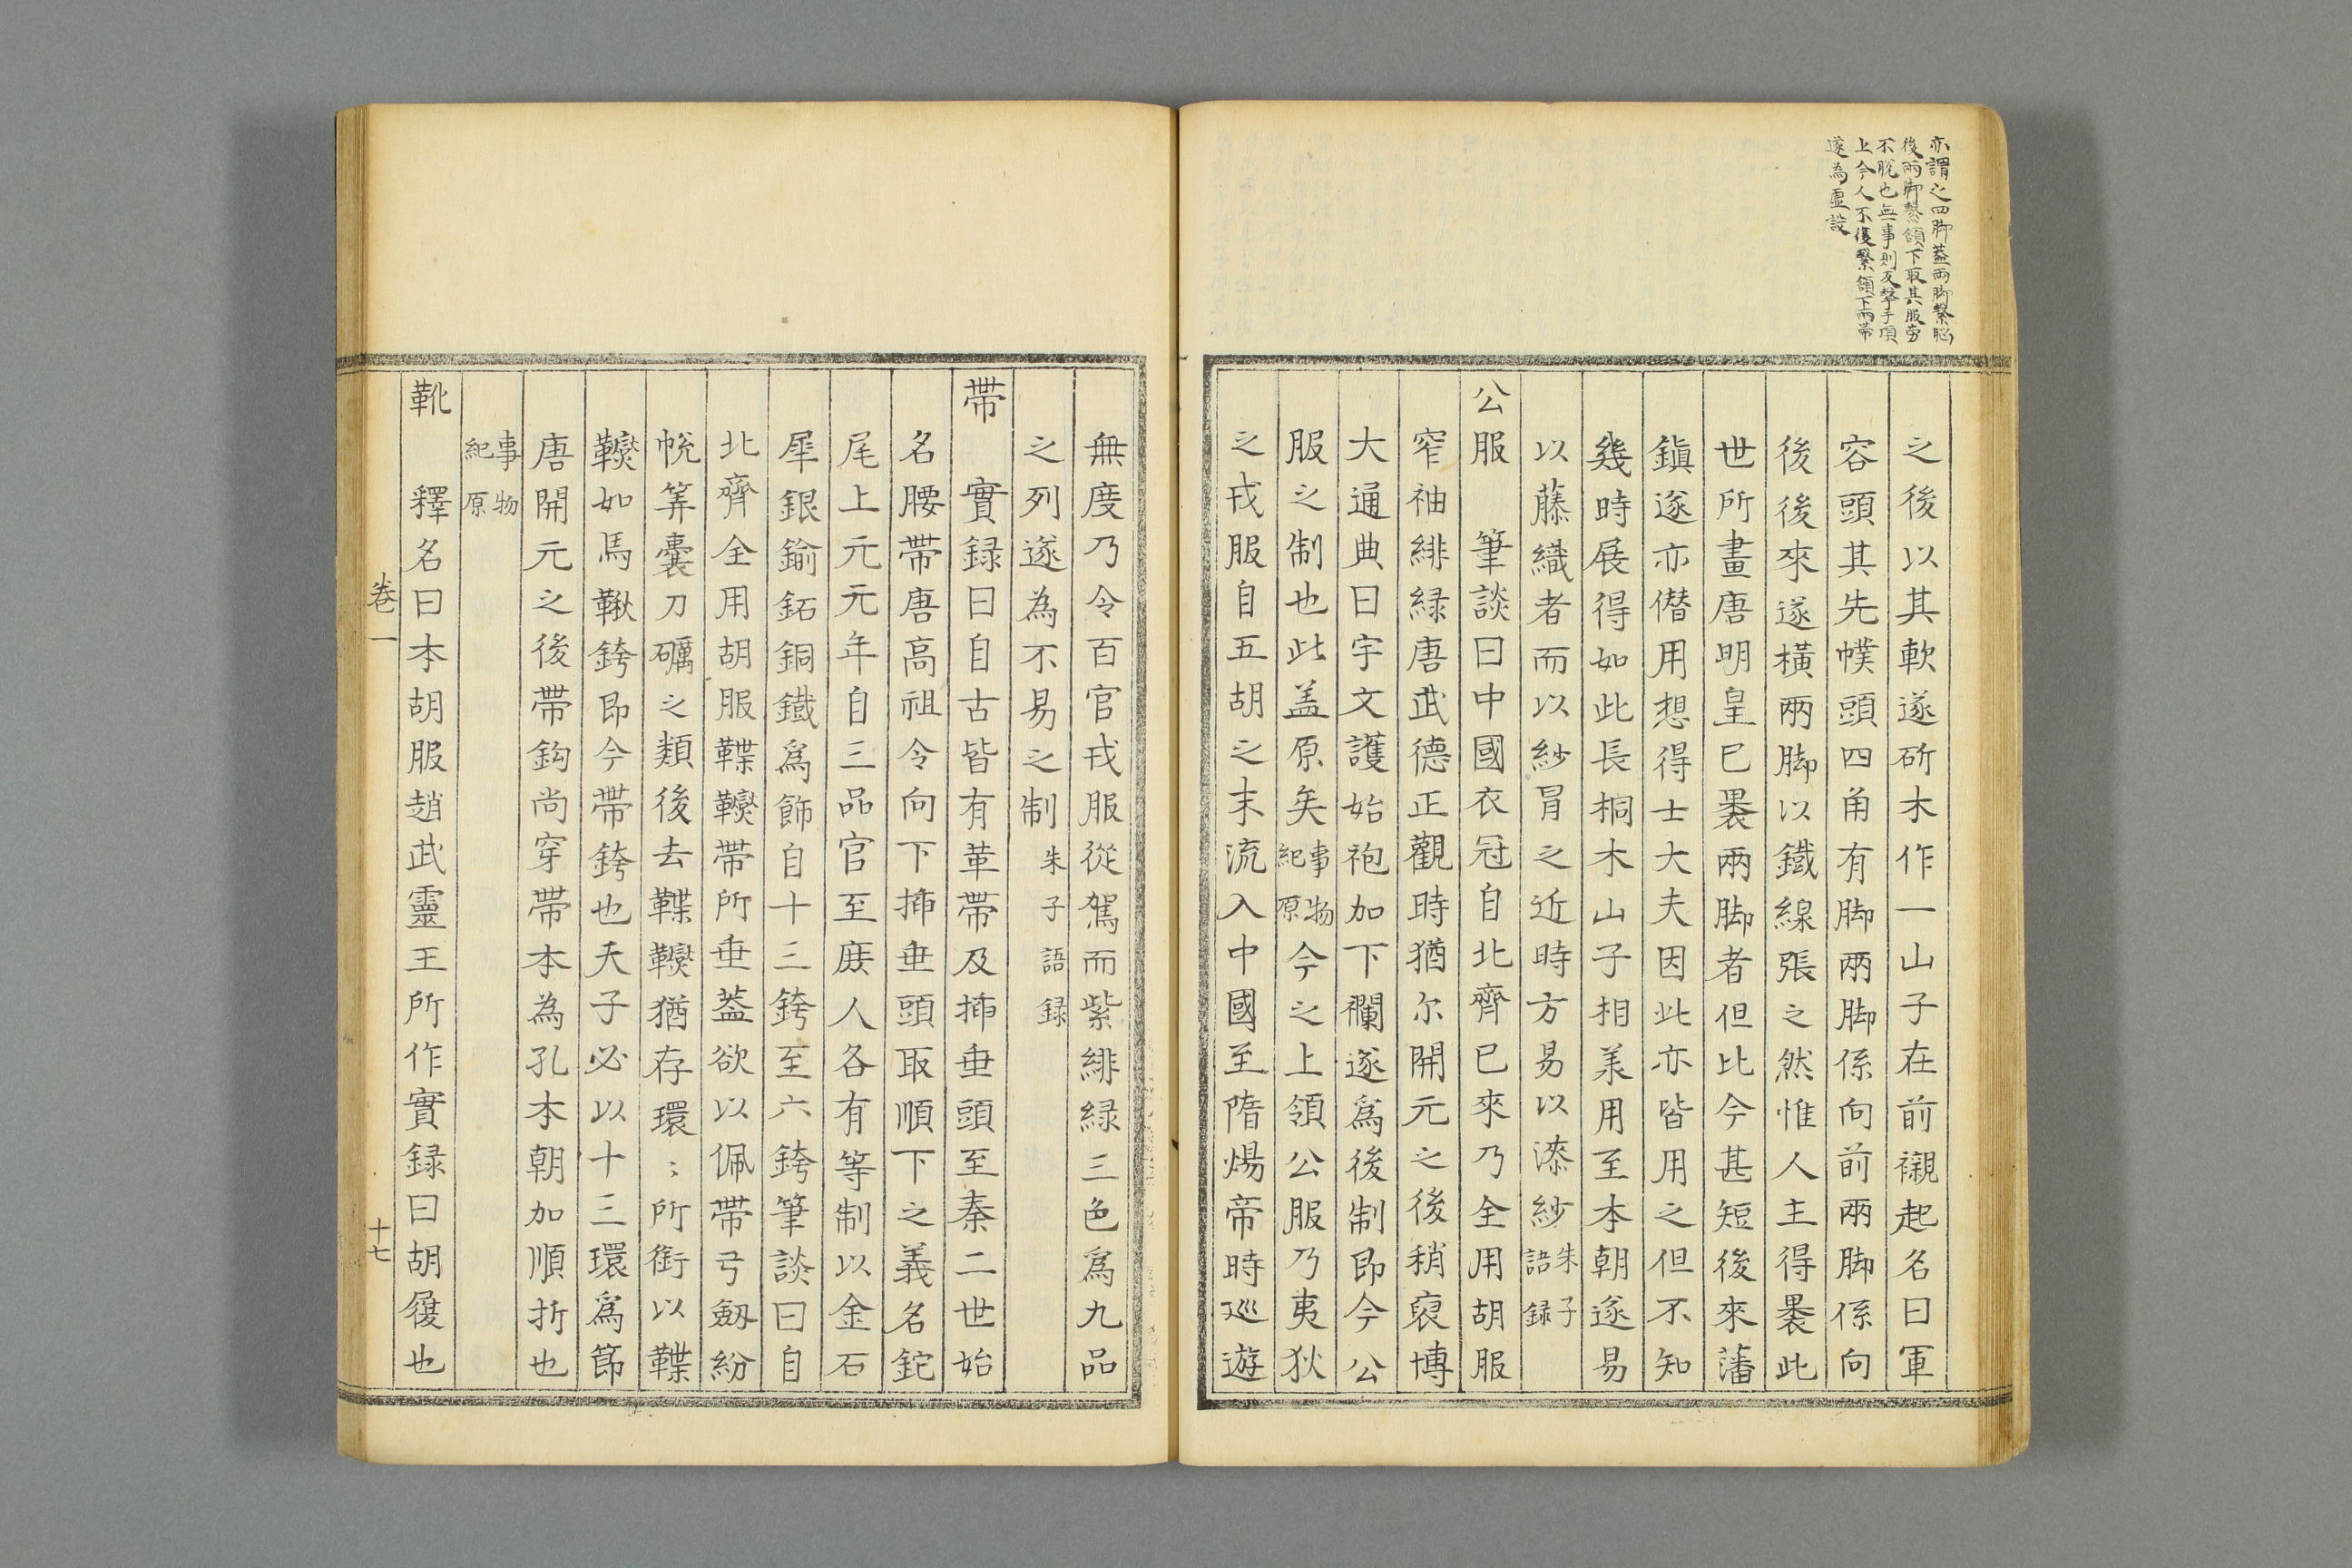 亦謂之四脚蓋兩脚繫腦
後兩脚繫頷下取其服勞
不脫也無事則反繫于項
上今人不復繫頷下兩帶
遂為虛設
之後以其軟遂斫木作一山子在前襯起名曰軍
容頭其先幞頭四角有脚兩脚係向前兩脚係向
後後來遂橫兩脚以鐵線張之然惟人主得褁此
世所畫唐明皇已褁兩脚者但比今甚短後來藩
鎮遂亦僣用想得士大夫因此亦皆用之但不知
幾時展得如此長桐木山子相羕用至本朝遂易
以藤織者而以紗冐之近時方易以漆紗朱子語録
公服 筆談曰中國衣冠自北齊已來乃全用胡服
窄袖緋緑唐武德正觀時猶尔開元之後稍裒博
大通典曰宇文護始袍加下襴遂爲後制即今公
服之制也此盖原矣事物紀原今之上領公服乃夷狄
之戎服自五胡之末流入中國至隋煬帝時巡遊
無度乃令百官戎服從駕而紫緋緑三色爲九品
之列遂為不易之制朱子語録
帶 實録曰自古皆有革帶及揷垂頭至秦二世始
名腰帶唐高祖令向下揷垂頭取順下之義名鉈
尾上元元年自三品官至庻人各有等制以金石
犀銀鍮鉐銅鐵爲飾自十三銙至六銙筆談曰自
北齊全用胡服鞢韈帶所垂蓋欲以佩帶弓劔紛
帨筭囊刀礪之類後去鞢韈猶存環〻所銜以鞢
韈如馬鞦銙即今帶銙也天子必以十三環爲節
唐開元之後帶鈎尚穿帶本為孔本朝加順折也
事物紀原
靴 釋名曰本胡服趙武靈王所作實録曰胡履也
卷一 十七